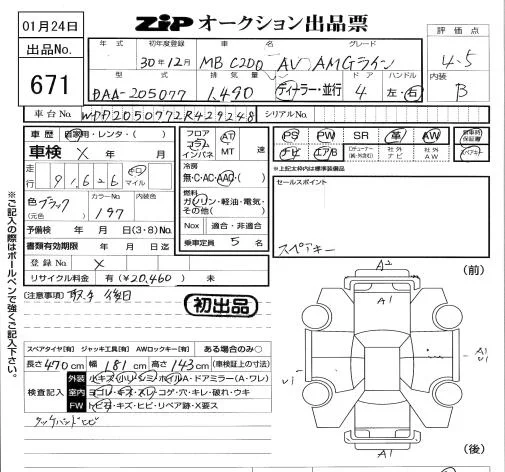 01月24日
ZiP オークション出品票
出品No.
671
評価点
4.5
内装
B
年式 初年度登録 車名 グレード
30年12月 MB C200 AV AMGライン
型式 排気量 ドア ハンドル
DAA-205077 1,490 ディーラー・並行 4 左・右
車台No. WDD2050772R429248 シリアルNo.
車歴 自家用・レンタ・( )
車検 × 年 月
走行 91,626 キロ マイル
色 ブラック (元色) カラーNo. 197 内装色
予備検 年 月 日(3・8)No.
書類有効期限 年 月 日迄
登録No. ×
リサイクル料金 有(¥20,460) 未
フロア コラム インパネ AT MT 速
冷房
無・C・AC・AAC・( )
燃料
ガソリン・軽油・電気・その他( )
Nox 適合・非適合
乗車定員 5 名
PS PW SR 革 AW 新車時保証書
ナビ エアB 社外ナビ 社外AW スペアキー
※上記太枠内は標準装備品
セールスポイント
スペアキー
(注意事項) 取 後日
初出品
スペアタイヤ[有] ジャッキ工具[有] AWロックキー[有] ある場合のみ○
長さ 470 cm 幅 181 cm 高さ 143 cm (車検証上の寸法)
検査記入
外装 小キズ・小リ・シミ・ホイルA・ドアミラー(A・ワレ)
室内 ヨゴレ・キズ・スレ・コゲ・穴・キレ・破れ・ウキ
FW トビ石・キズ・ヒビ・リペア跡・X要ス
※ご記入の際はボールペンで強くご記入下さい。
(前)
A2
A1
U1
A1
U1
A1
(後)